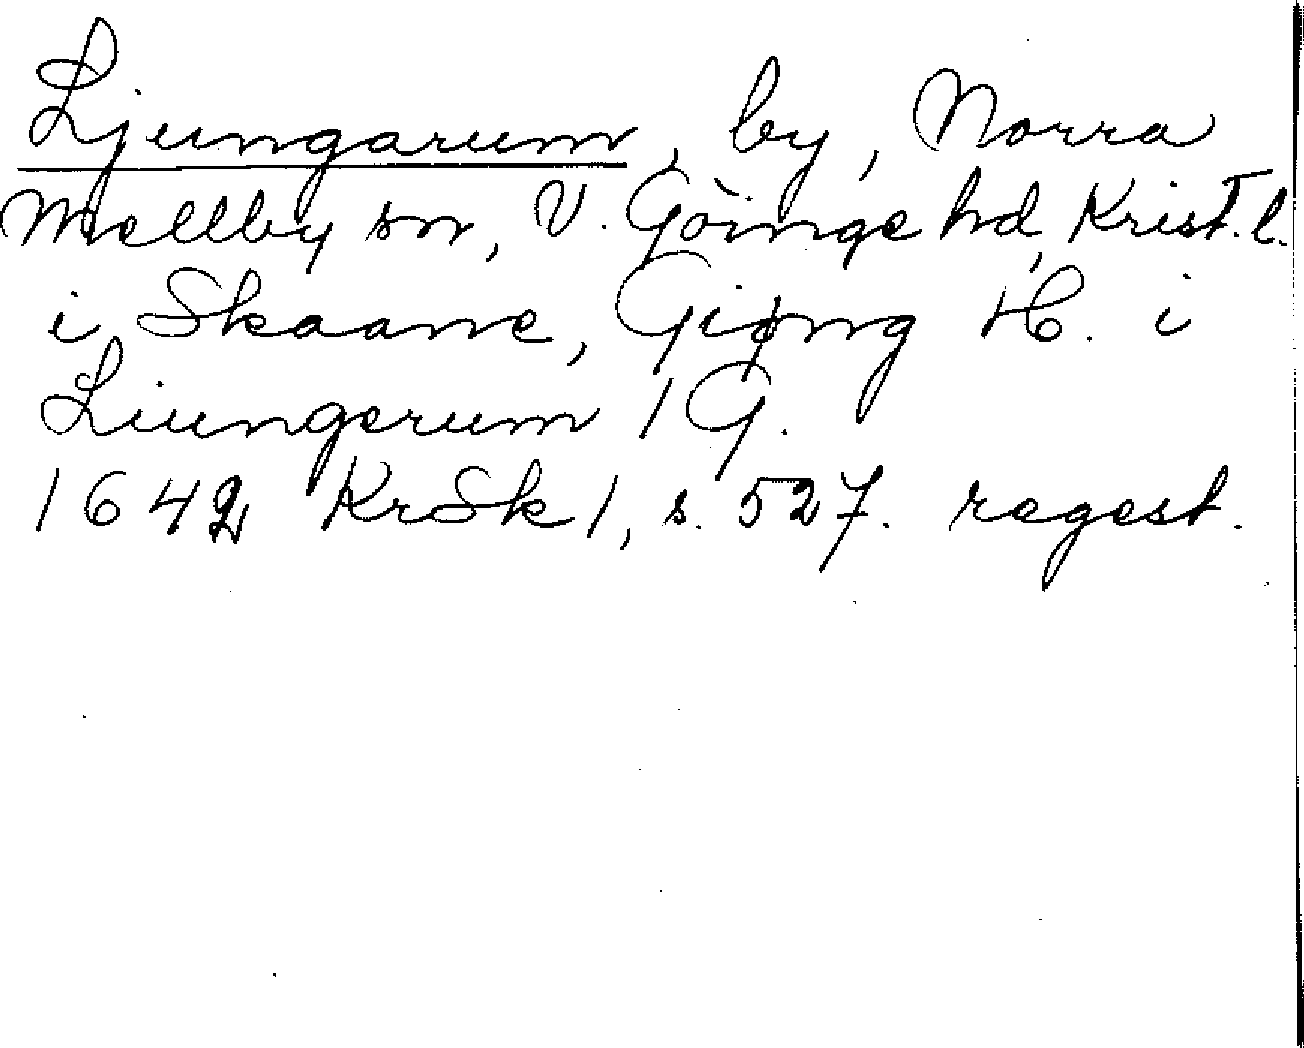 Ljungarum, by, Norra
Mellby sn, V. Göinge hd, Krist. l.
i Skaane, Giøng H. i
Liungerum 1 G.
1642 KrSk 1, s. 527. regest.